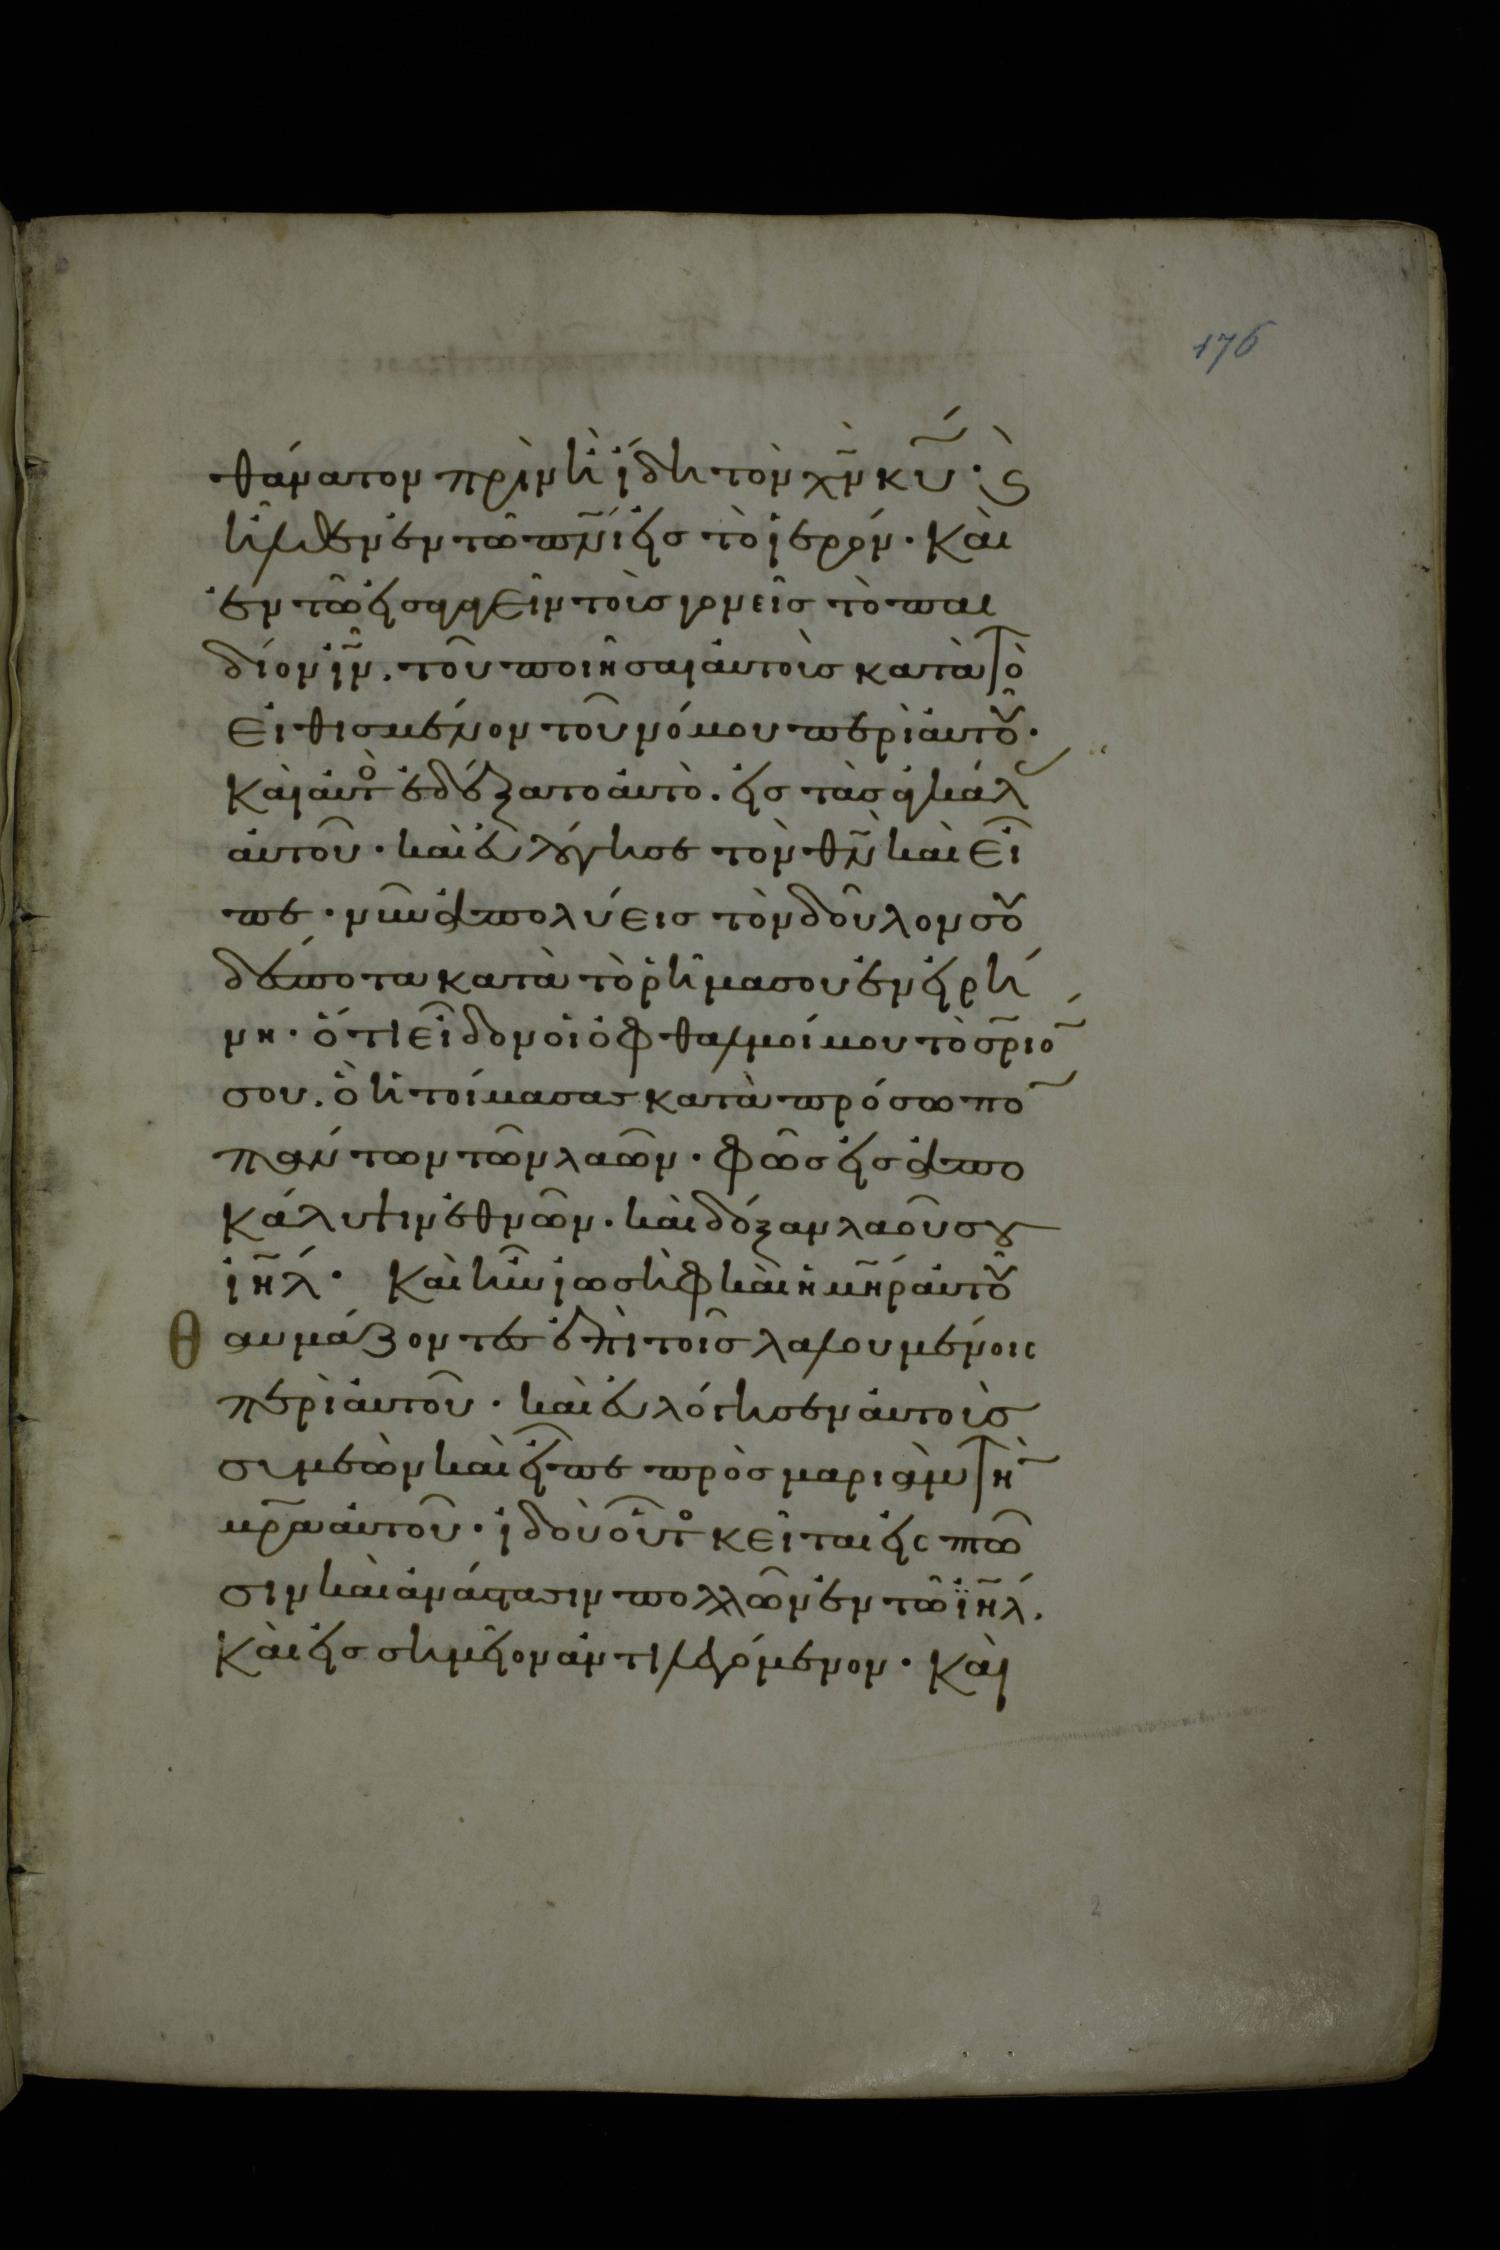 176
θάνατον πρὶν ἢ ἴδη τὸν χν̅ κυ̅· ϛ̀
ἦλθεν ἐν τῶ πνι̅ εἰς τὸ ἱερόν· Καὶ
ἐν τῶ εἰσαγαγεῖν τοὺς γονεῖς τὸ παι
δίον ιν̅. τοῦ ποιῆσαι αὐτοὺς κατὰ τὸ
εἰθισμένον τοῦ νόμου περὶ αὐτοῦ·
Καὶ αὐτὸ ἐδέξατο αὐτὸ. εἰς τὰς ἀγκάλ
αὐτοῦ· καὶ εὐλόγησε τὸν θν̅ καὶ εἶ
πε· νῦν ἀπολύεις τὸν δοῦλον σου
δέσποτα κατὰ τὸ ῥῆμα σου ἐν εἰρή
νη· ὅτι εἶδον οἱ ὀφθαλμοί μου τὸ σρ̅ιο
σου. ὃ ἡτοίμασας κατὰ πρόσωπο
πάντων τῶν λαῶν· φῶς εἰς ἀπο
κάλυψιν ἐθνῶν· καὶ δόξαν λαοῦ σου
ιη̅λ· Καὶ ἦν ἰωσὴφ καὶ ἡ μη̅ρ αὐτοῦ
θαυμάζοντες ἐπὶ τοῖς λαλουμένοις
περὶ αὐτοῦ· καὶ εὐλόγησεν αὐτοὺς
συμεὼν καὶ εἶπε πρὸς μαριὰμ τὴ
μρ̅α αὐτοῦ· ἰδοὺ οὗτος κεῖται εἰς πτῶ
σιν καὶ ἀνάστασιν πολλῶν ἐν τῶ ϊη̅λ.
Καὶ εἰς σημεῖον ἀντιλεγόμενον· Καὶ
2